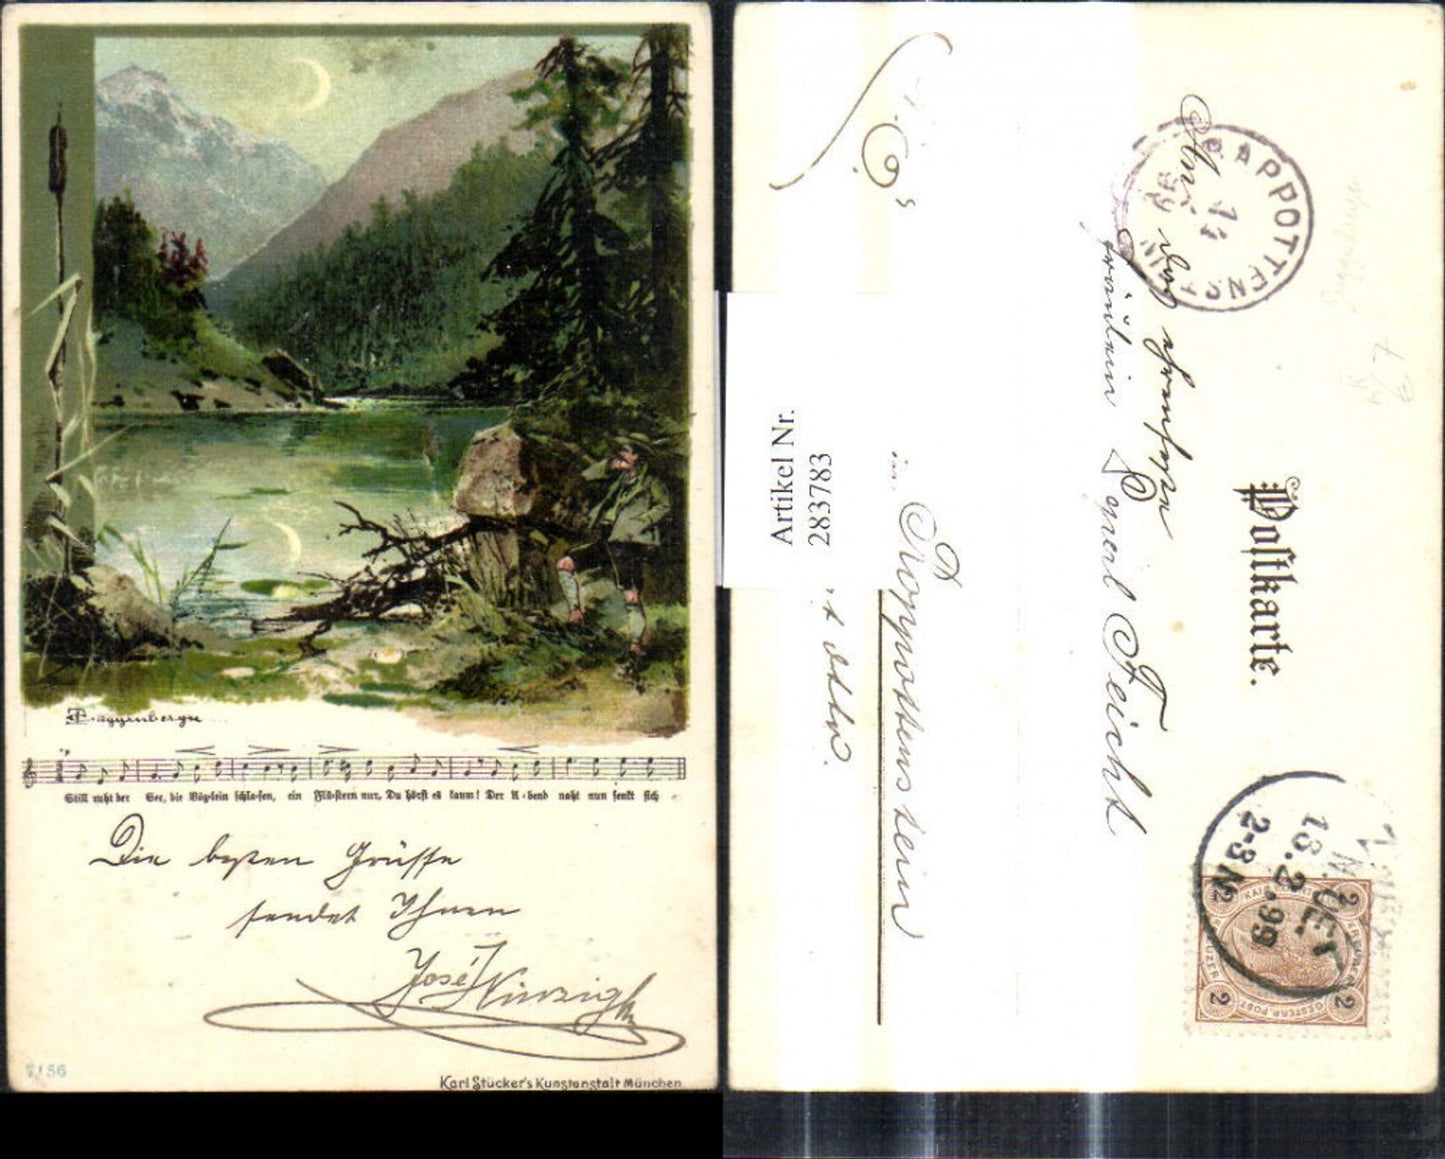 Guggenberger
Still ruht der See, die Vög-lein schla-fen, ein Flü-stern nur, Du hörst es kaum! Der A-bend naht nun senkt sich
Die besten Grüsse
sendet Ihnen
José Winzig
7156
Karl Stücker's Kunstanstalt München
Postkarte.
Fräulein
Feicht
in Rappottenstein
Artikel Nr.
283783
RAPPOTTENSTEIN
14
99
13.2.99
2-3N
2
2
2
2
KREUZER
OESTERR. POST